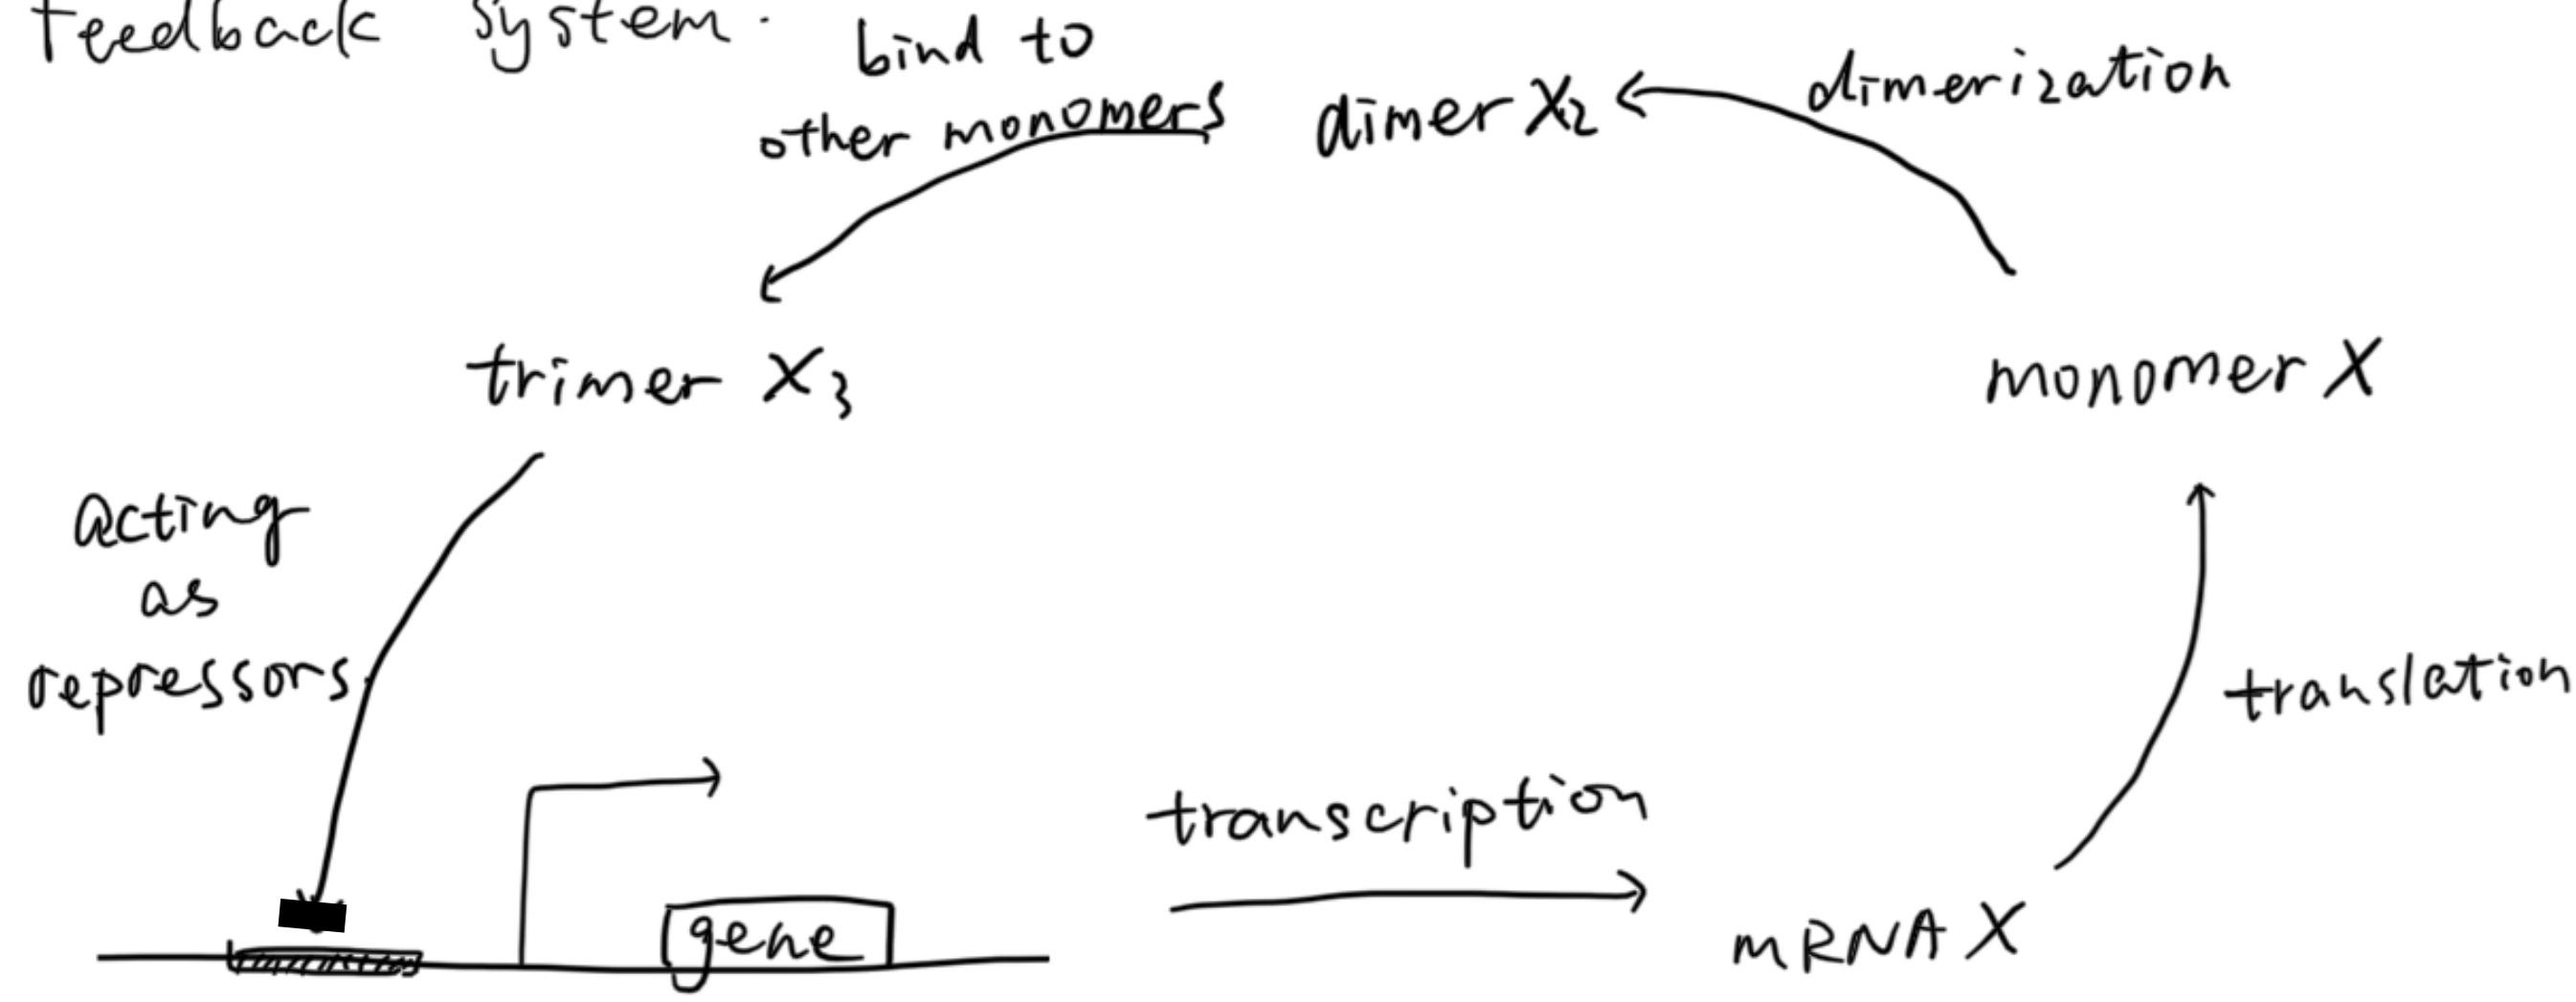 feedback system.
bind to
other monomers
dimer X2
dimerization
trimer X3
monomer X
acting
as
repressors.
translation
transcription
gene
mRNA X